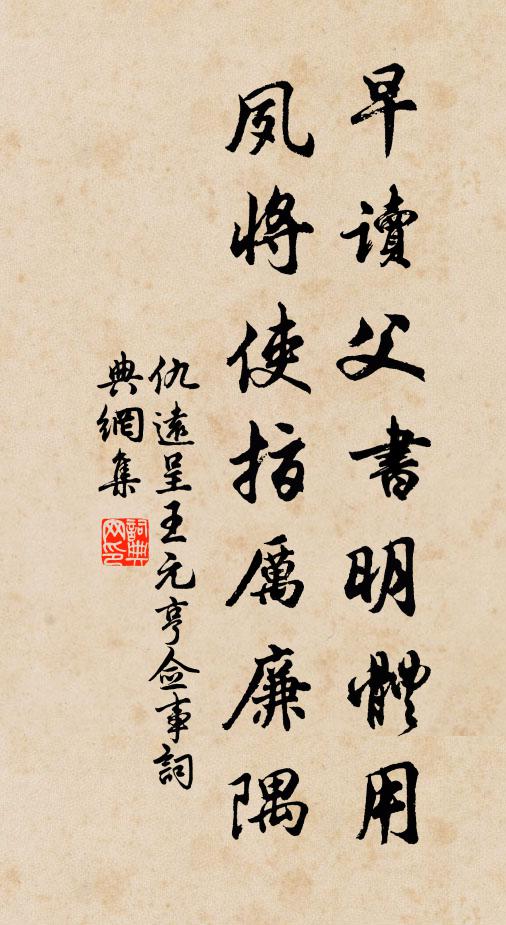 早讀父書明體用
夙將使指厲廉隅
仇遠呈王元亨僉事詞
典網集
詞典
網印